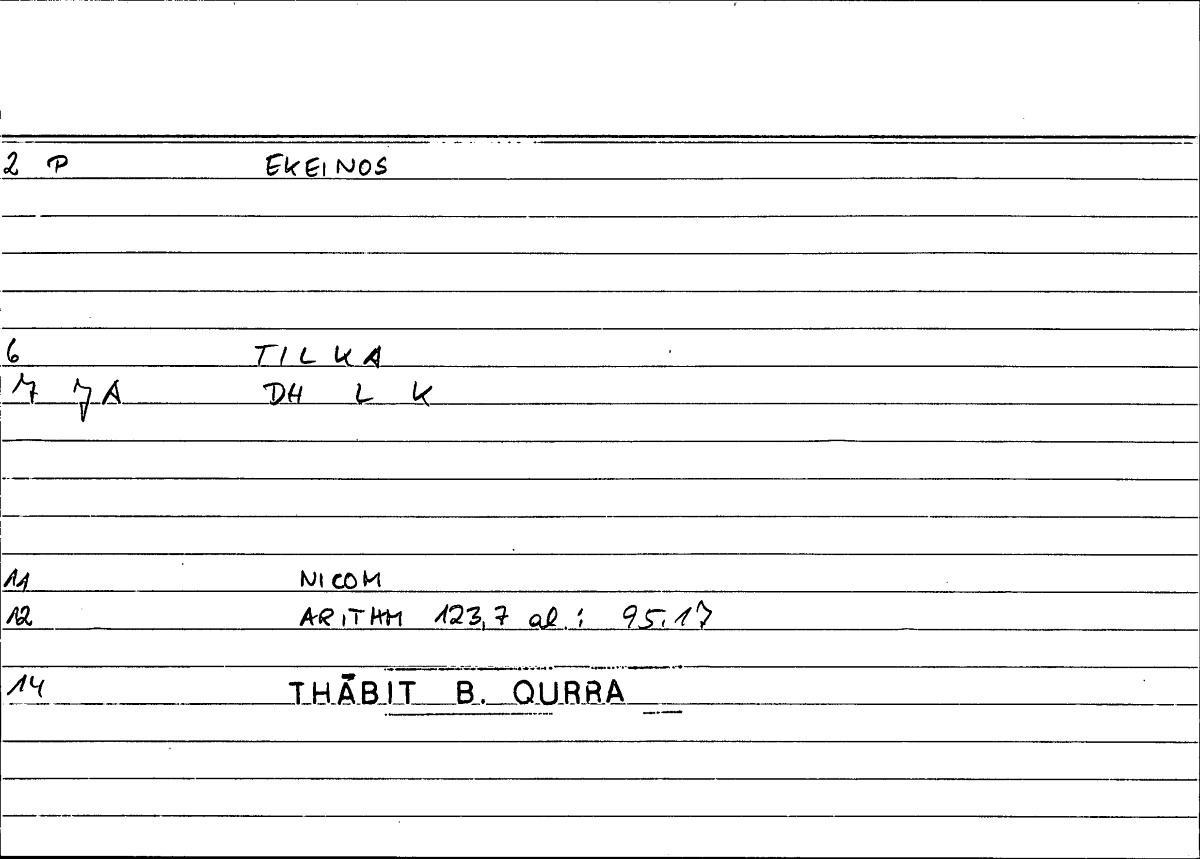 2 P EKEINOS
6 TILKA
7 7A DH L K
11 NICOM
12 ARITHM 123,7 al : 95.17
14 THĀBIT B. QURRA